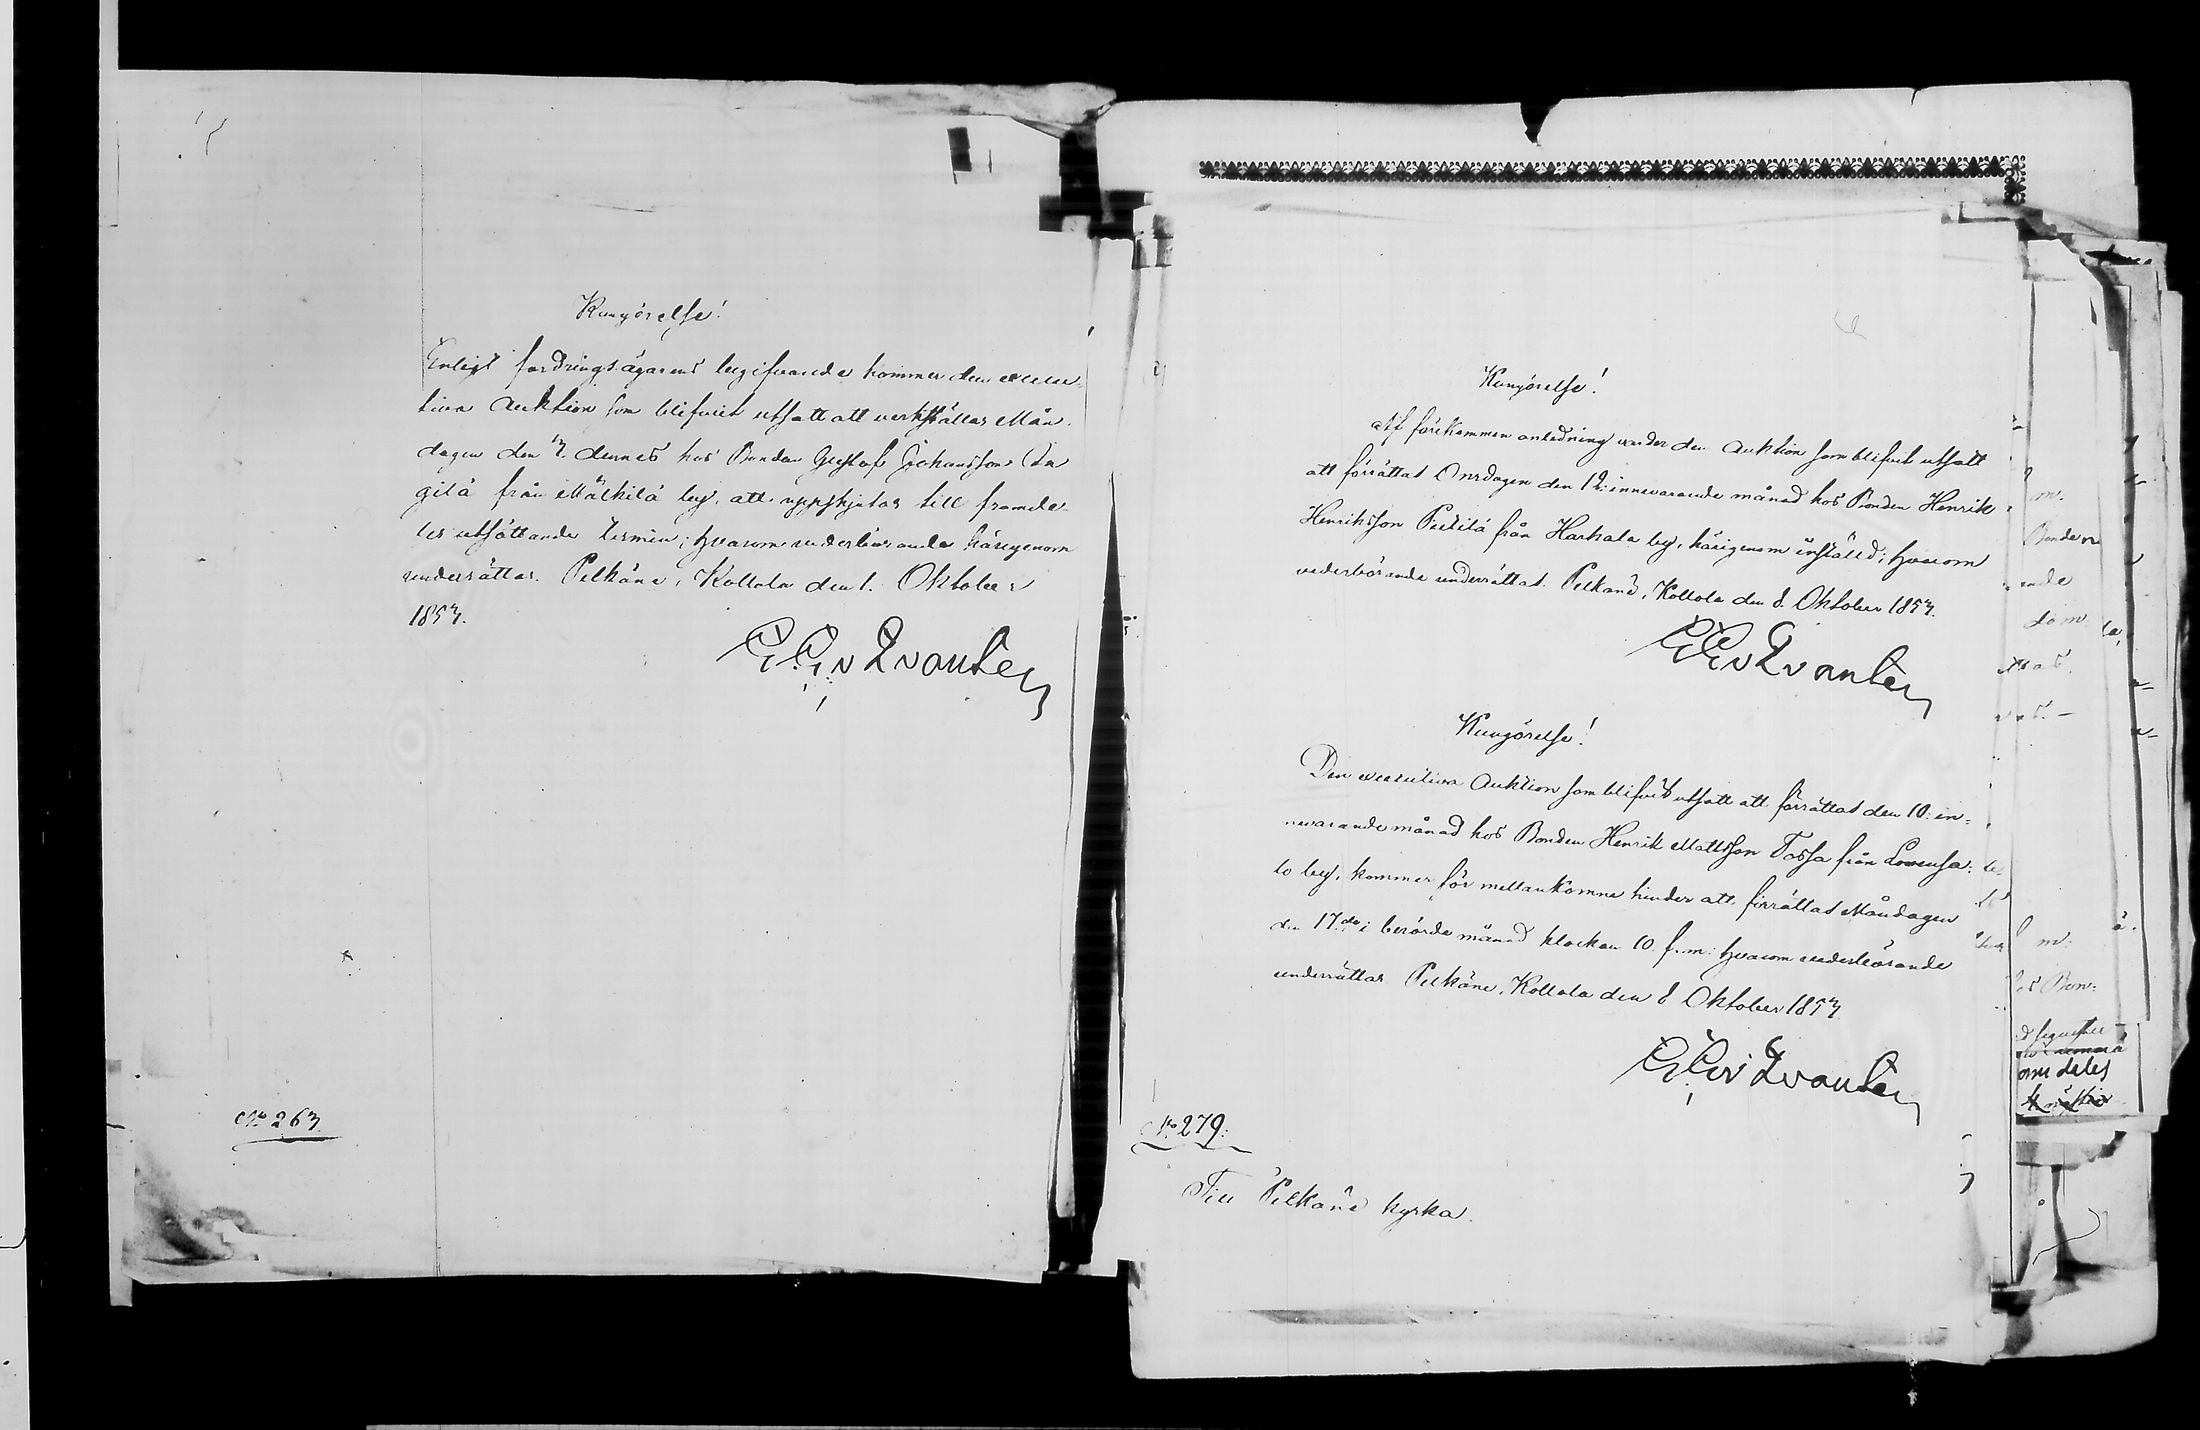 Kungörelse!
Enligt fordringsägarens begifvande kommer den execu-
tiva Auktion som blifvit utsatt att verkställas Mån-
dagen den 3. dennes hos Bonden Gustaf Johansson
gilä från Mälkilä by, att uppskjutas till framde-
les utsättande termin; hvarom vederbörande härigenom
underrättas. Pelkäne, Kollola den 1. Oktober
1853.
G. G. v Qvanten
No 263.
Kungörelse!
Af förekommen anledning varder den Auktion som blifvit utsatt
att förrättas Onsdagen den 12. innevarande månad hos Bonden Henrik
Henriksson Pietilä från Harhala by, härigenom inställd; hvarom
vederbörande underrättas. Pelkäne, Kollola den 8. Oktober 1853.
G. G. v Qvanten
Kungörelse!
Den executiva Auktion som blifvit utsatt att förrättas den 10. in-
nevarande månad hos Bonden Henrik Mattsson Tossa från
to by, kommer för mellankomne hinder att förrättas Måndagen
den 17.de i berörde månad klockan 10 f.m. hvarom vederbörande
underrättas. Pelkäne, Kollola den 8 Oktober 1853.
G. G. v Qvanten
No 279.
Till Pelkäne kyrka.